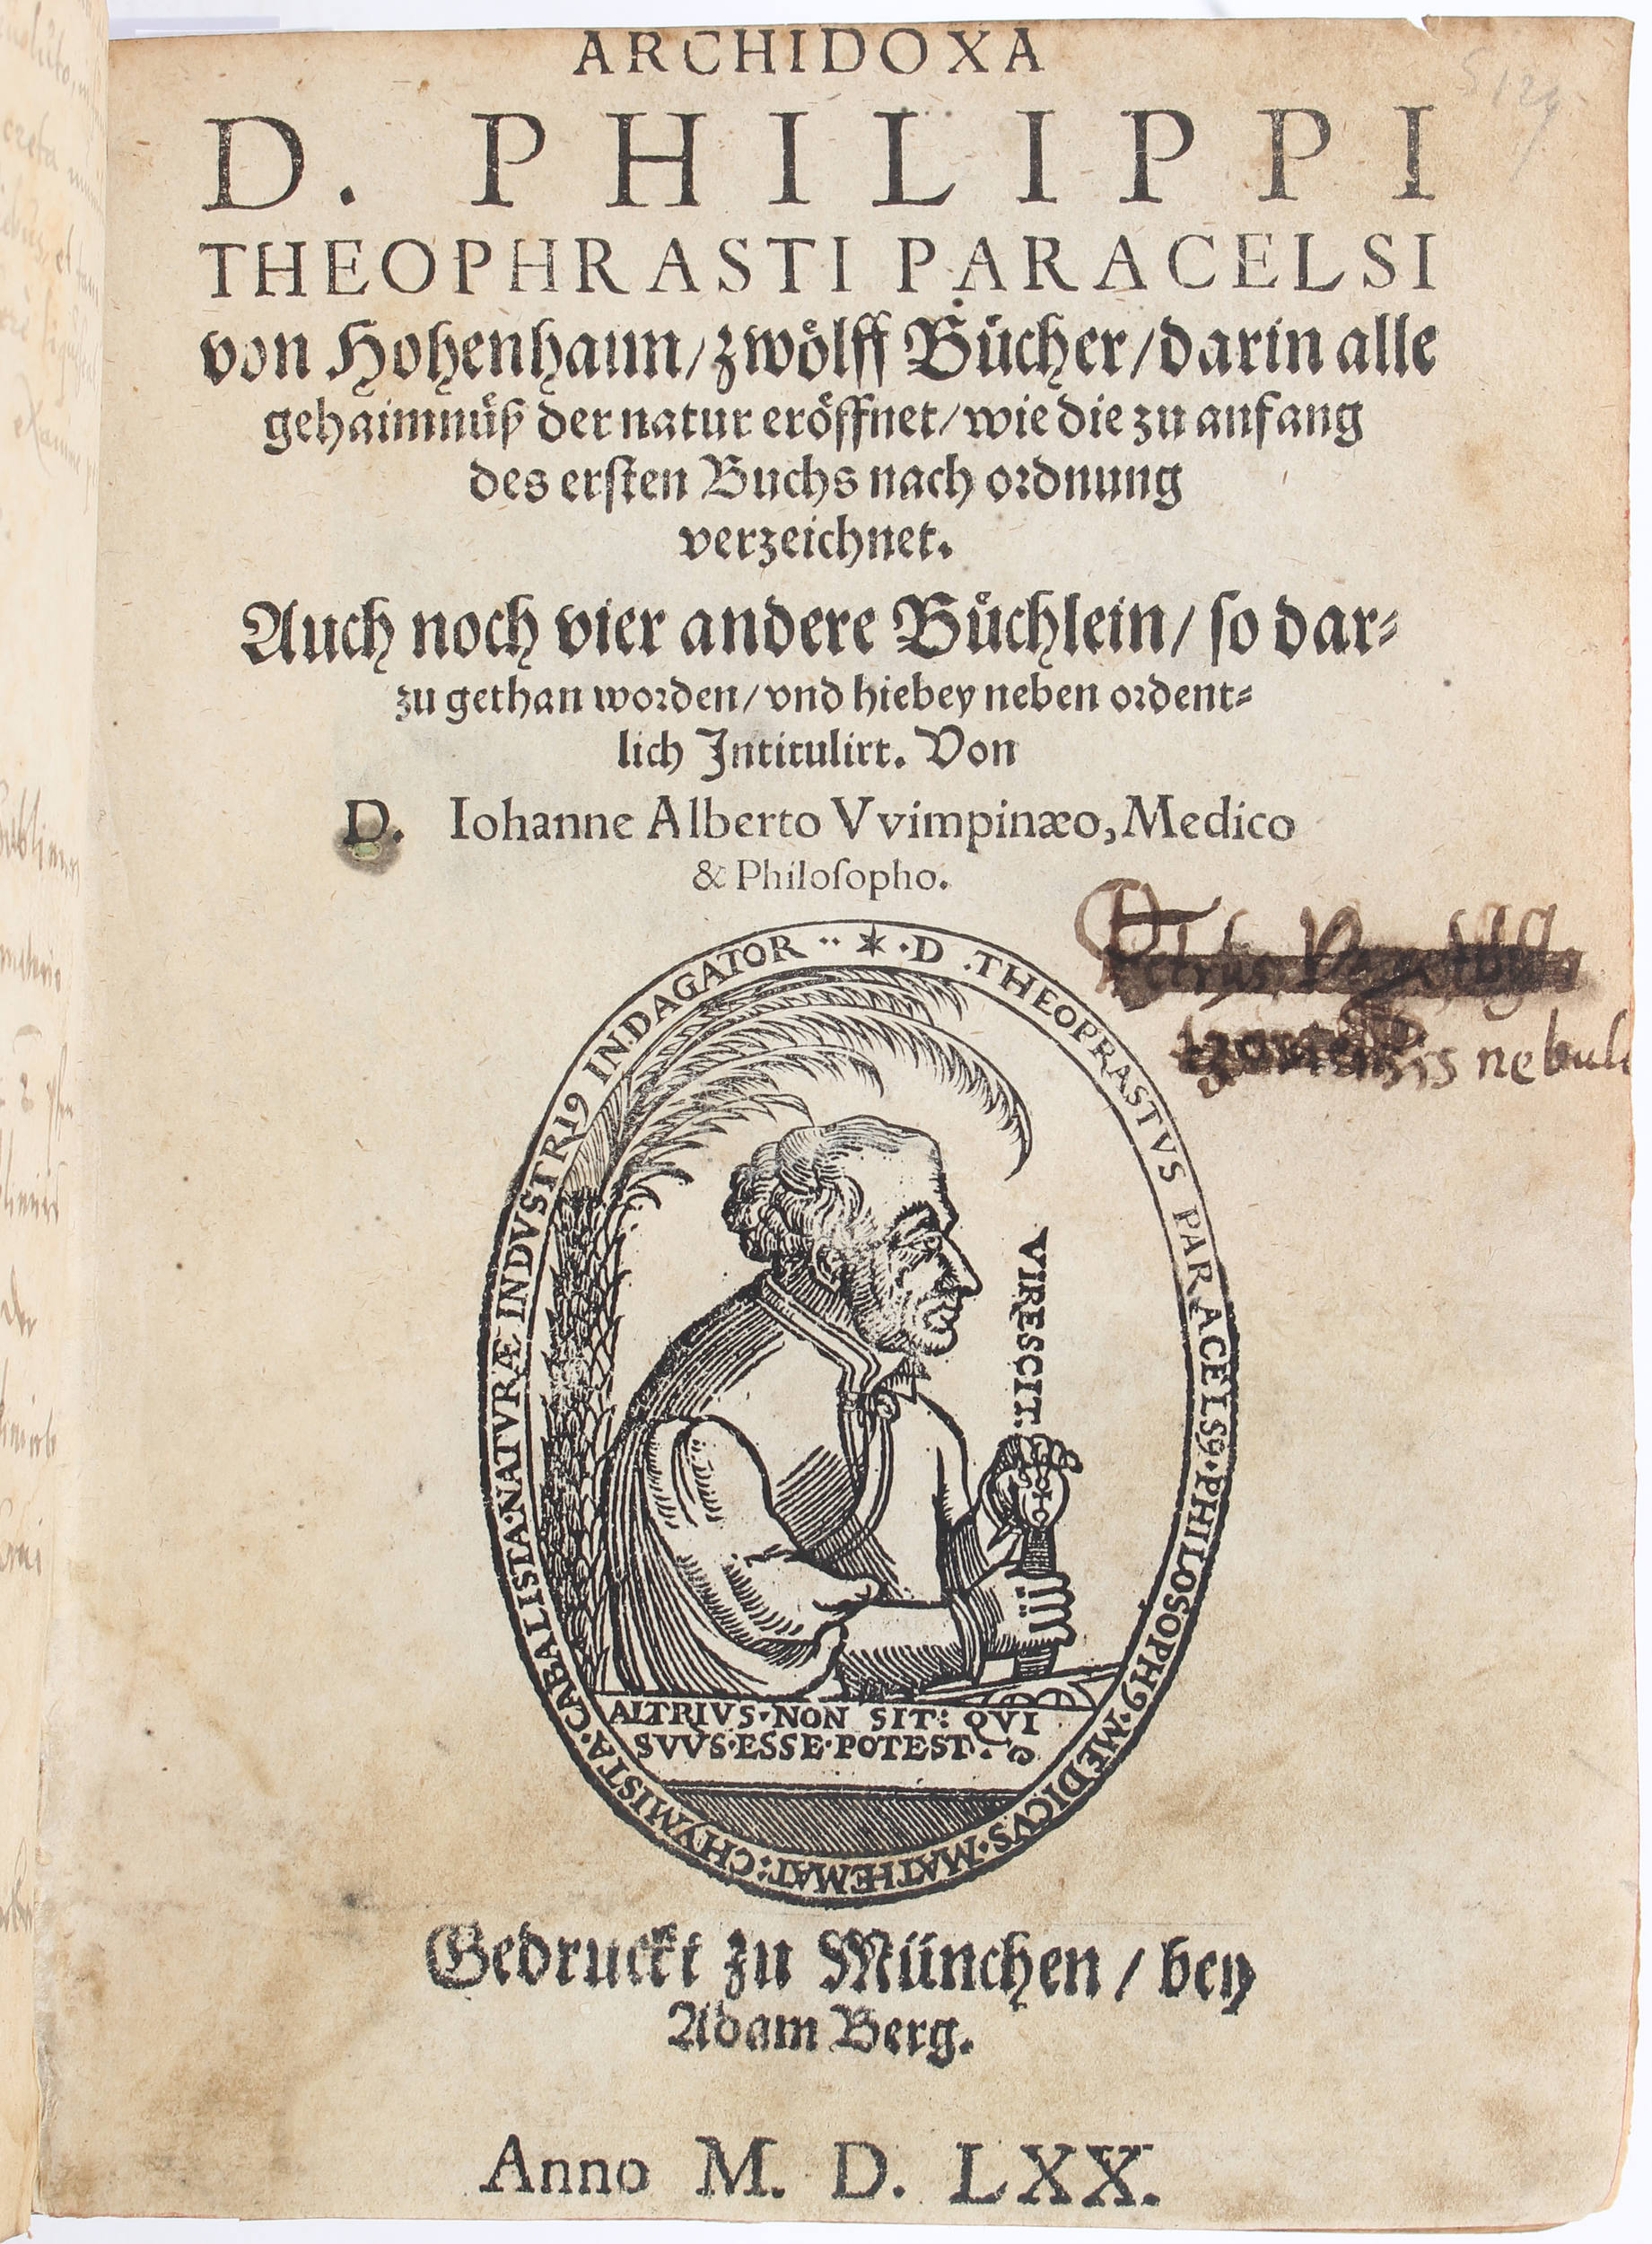 ARCHIDOXA
D. PHILIPPI
THEOPHRASTI PARACELSI
von Hohenhaun/zwoͤlff Buͤcher/darin alle
gehaimnuͤß der natur eroͤffnet/wie die zu anfang
des erſten Buchs nach ordnung
verzeichnet.
Auch noch vier andere Buͤchlein/ ſo dar⸗
zu gethan worden/vnd hiebey neben ordent⸗
lich Intitulirt. Von
D. Iohanne Alberto Vvimpinæo, Medico
& Philoſopho.
Petrus
nebul
✶ · D . THEOPRASTVS PARACELSꝰ · PHILOSOPHꝰ · MEDICVS · MATHEMAT: CHYMISTA · CABALISTA · NATVRÆ INDVSTRIꝰ INDAGATOR ··
VIRESCIT.
ALTRIVS·NON SIT: QVI
SVVS·ESSE·POTEST.
Gedruckt zu München / bey
Adam Berg.
Anno M. D. LXX.